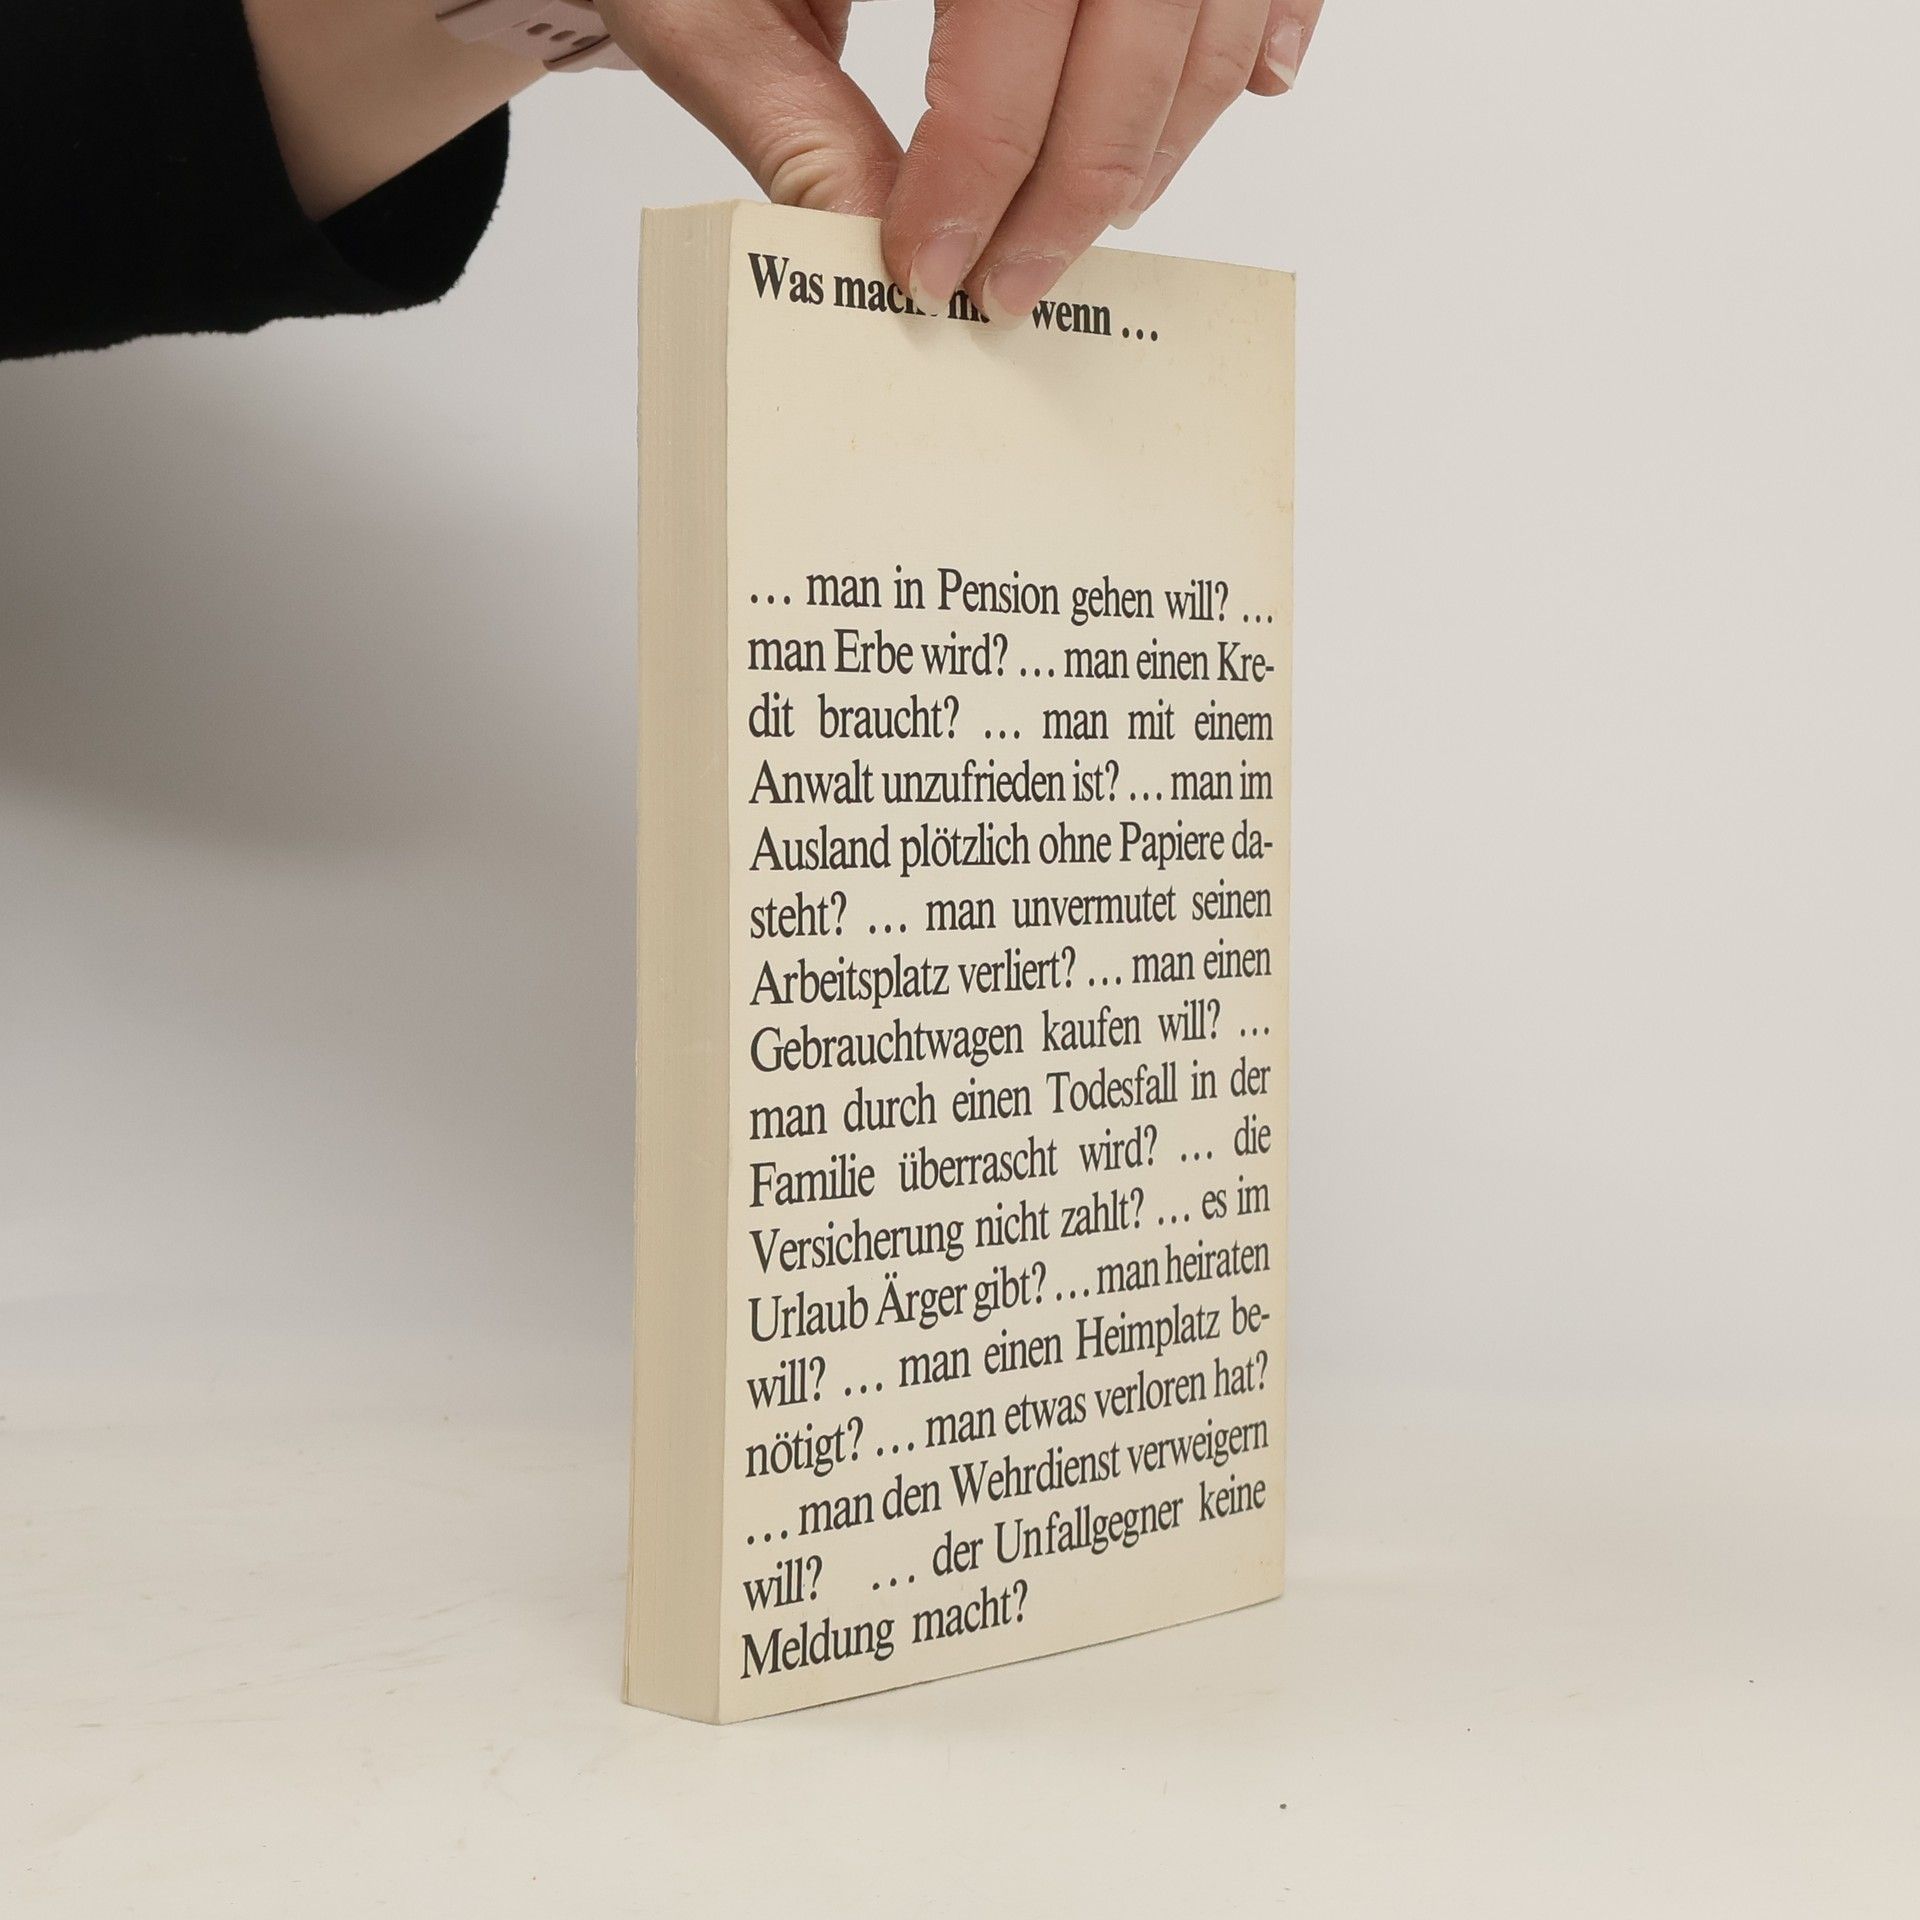 Was wenn ...
... man in Pension gehen will? ...
man Erbe wird? ... man einen Kre-
dit braucht? ... man mit einem
Anwalt unzufrieden ist? ... man im
Ausland plötzlich ohne Papiere da-
steht? ... man unvermutet seinen
Arbeitsplatz verliert? ... man einen
Gebrauchtwagen kaufen will? ...
man durch einen Todesfall in der
Familie überrascht wird? ... die
Versicherung nicht zahlt? ... es im
Urlaub Ärger gibt? ... man heiraten
will? ... man einen Heimplatz be-
nötigt? ... man etwas verloren hat?
... man den Wehrdienst verweigern
will? ... der Unfallgegner keine
Meldung macht?